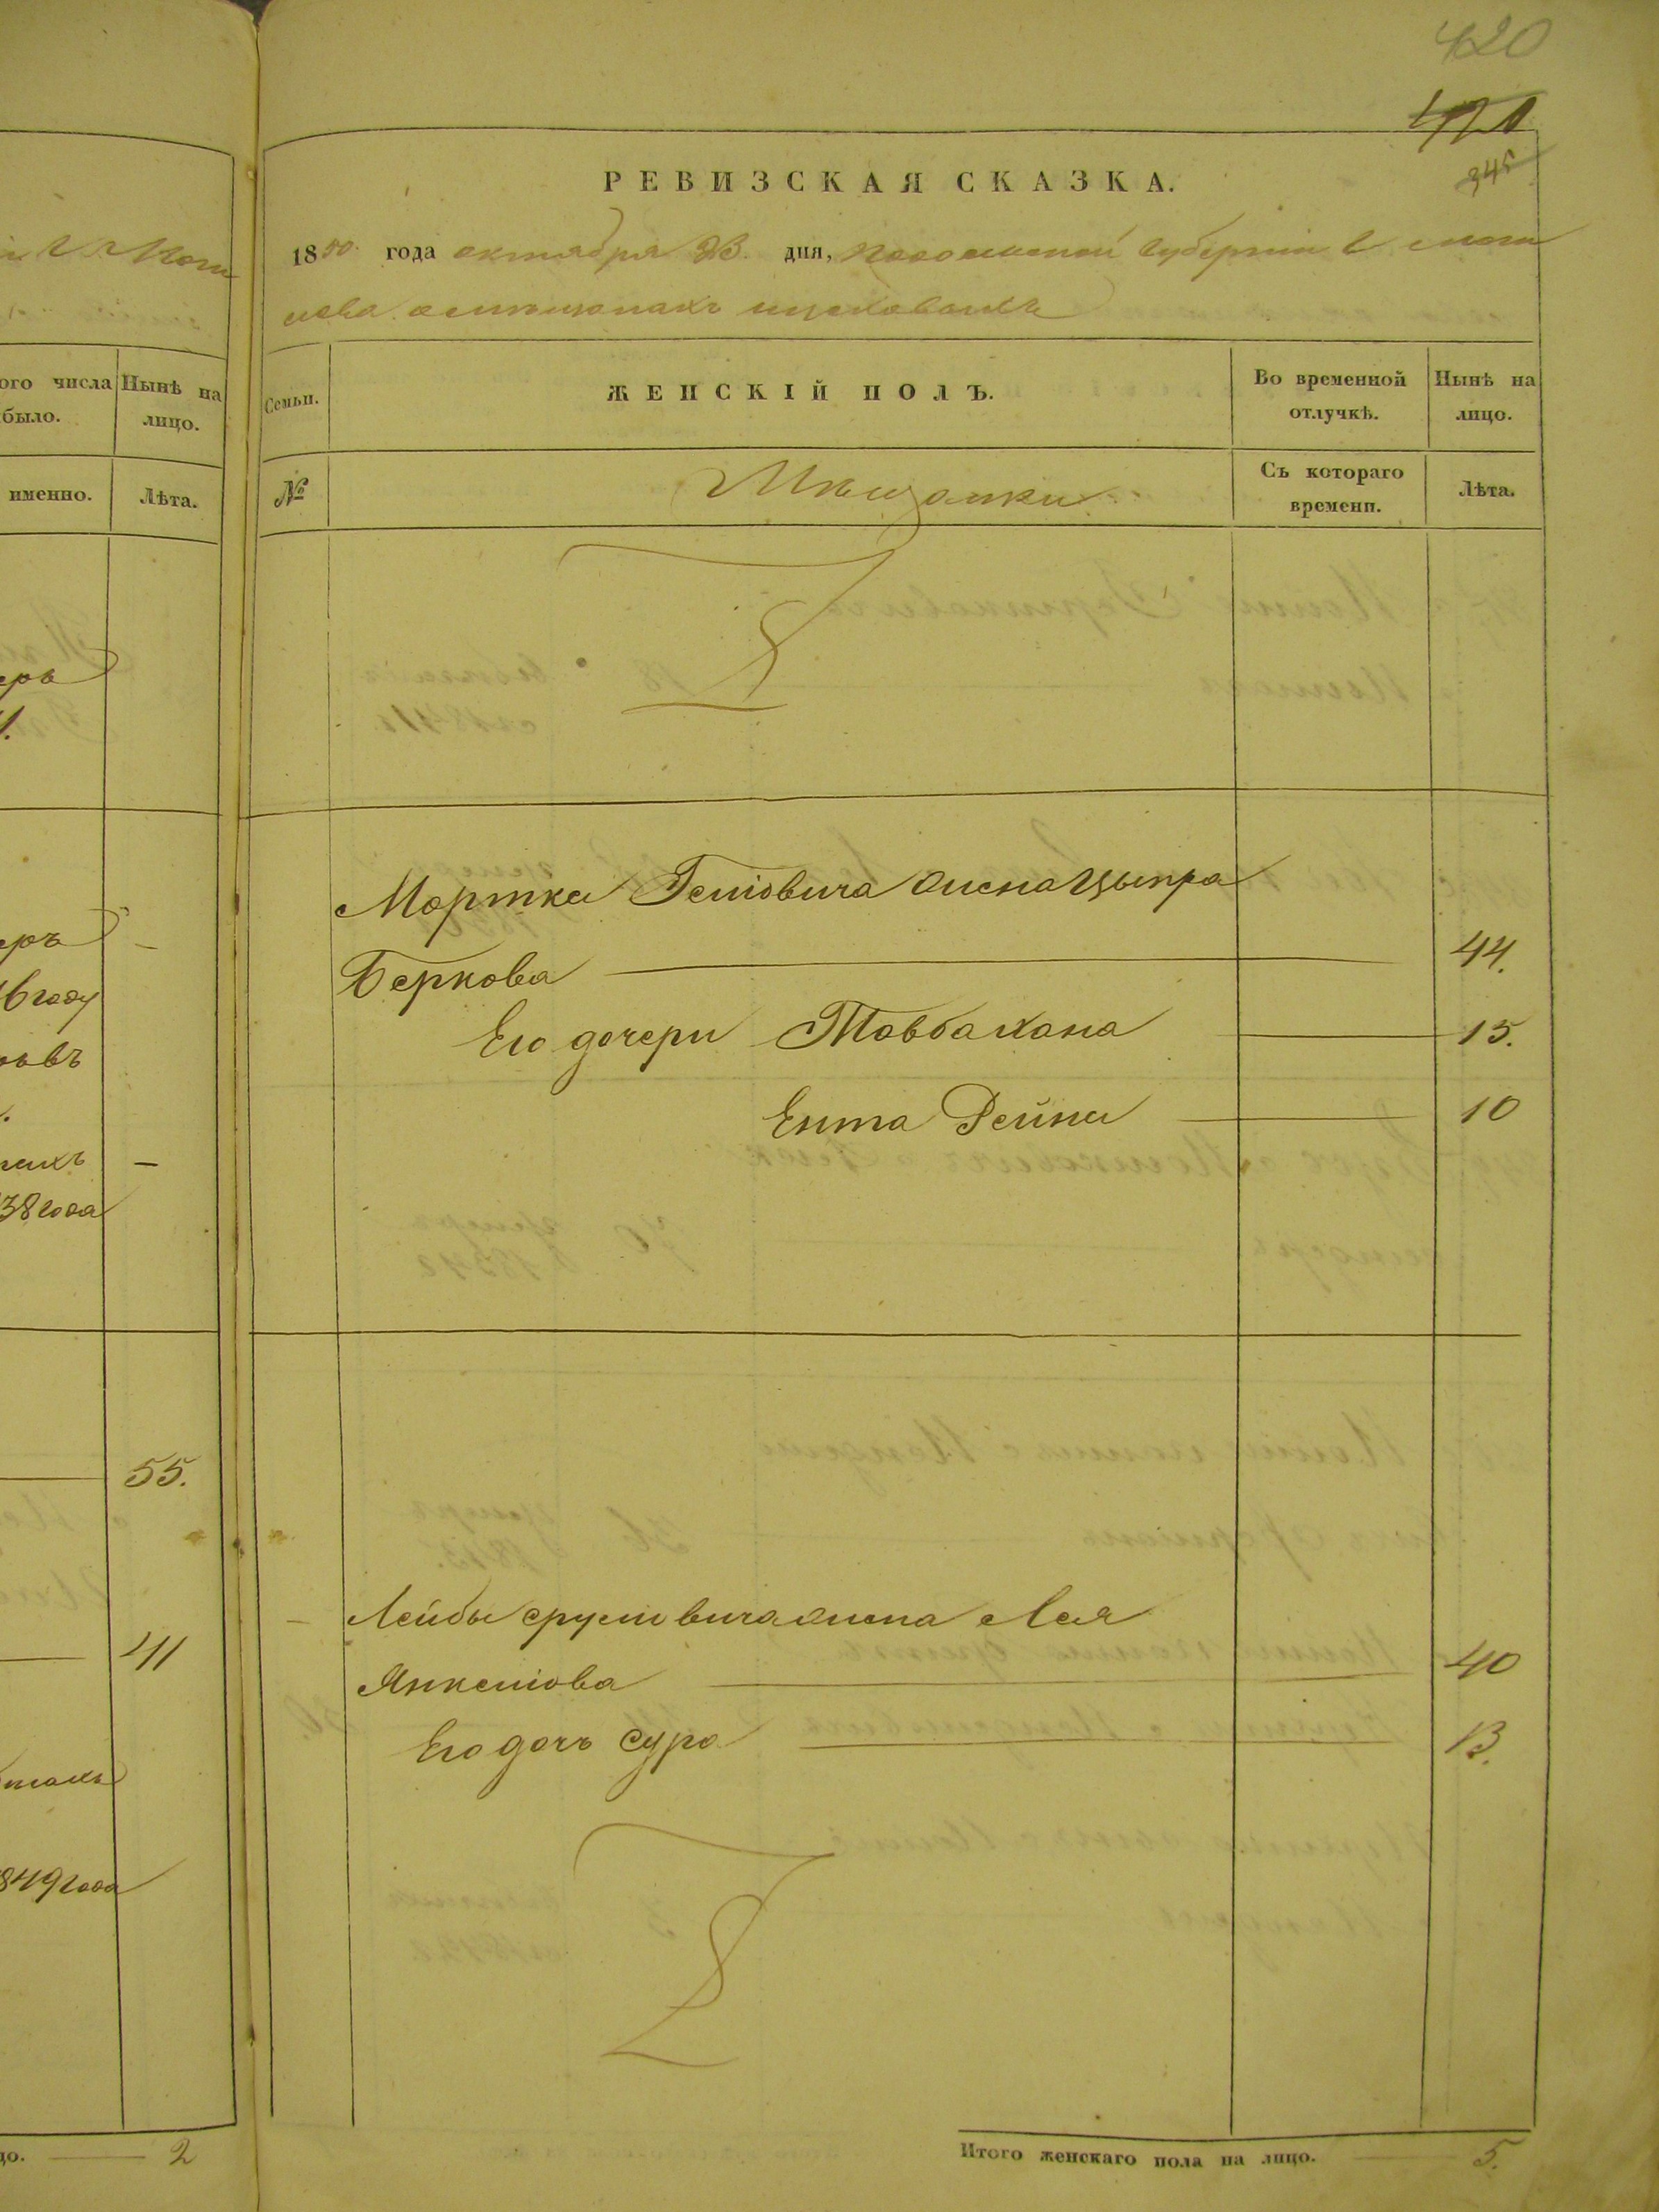 420
421
345
РЕВИЗСКАЯ СКАЗКА.
1850 года октября 23 дня, Подольской губернии г. Моги
лева о мещанахъ
Семьи.
ЖЕНСКІЙ ПОЛЪ.
Во временной отлучкѣ.
Нынѣ на лицо.
№
Мещанки
Съ котораго времени.
Лѣта.
Мортка Геліовича жена Цыпра
Беркова 44.
Его дочери Товба Хана 15.
Ента Рейна 10
Лейбы Срулевича жена Лея
Янкеліова 40
Его дочь Сура 13.
Итого женскаго пола на лицо. 5.
ого числа
было.
Нынѣ на
лицо.
именно.
Лѣта.
6 году
38 года
55.
41
849 года
цо. 2